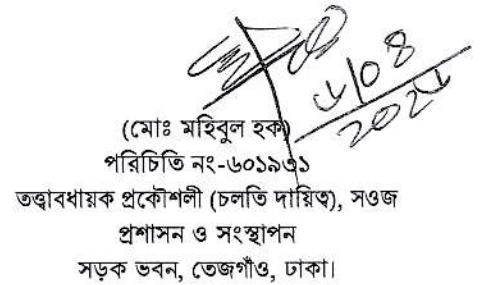 (মোঃ মহিবুল হক)
পরিচিতি নং-৬০১৯৩১
তত্ত্বাবধায়ক প্রকৌশলী (চলতি দায়িত্ব), সওজ
প্রশাসন ও সংস্থাপন
সড়ক ভবন, তেজগাঁও, ঢাকা।